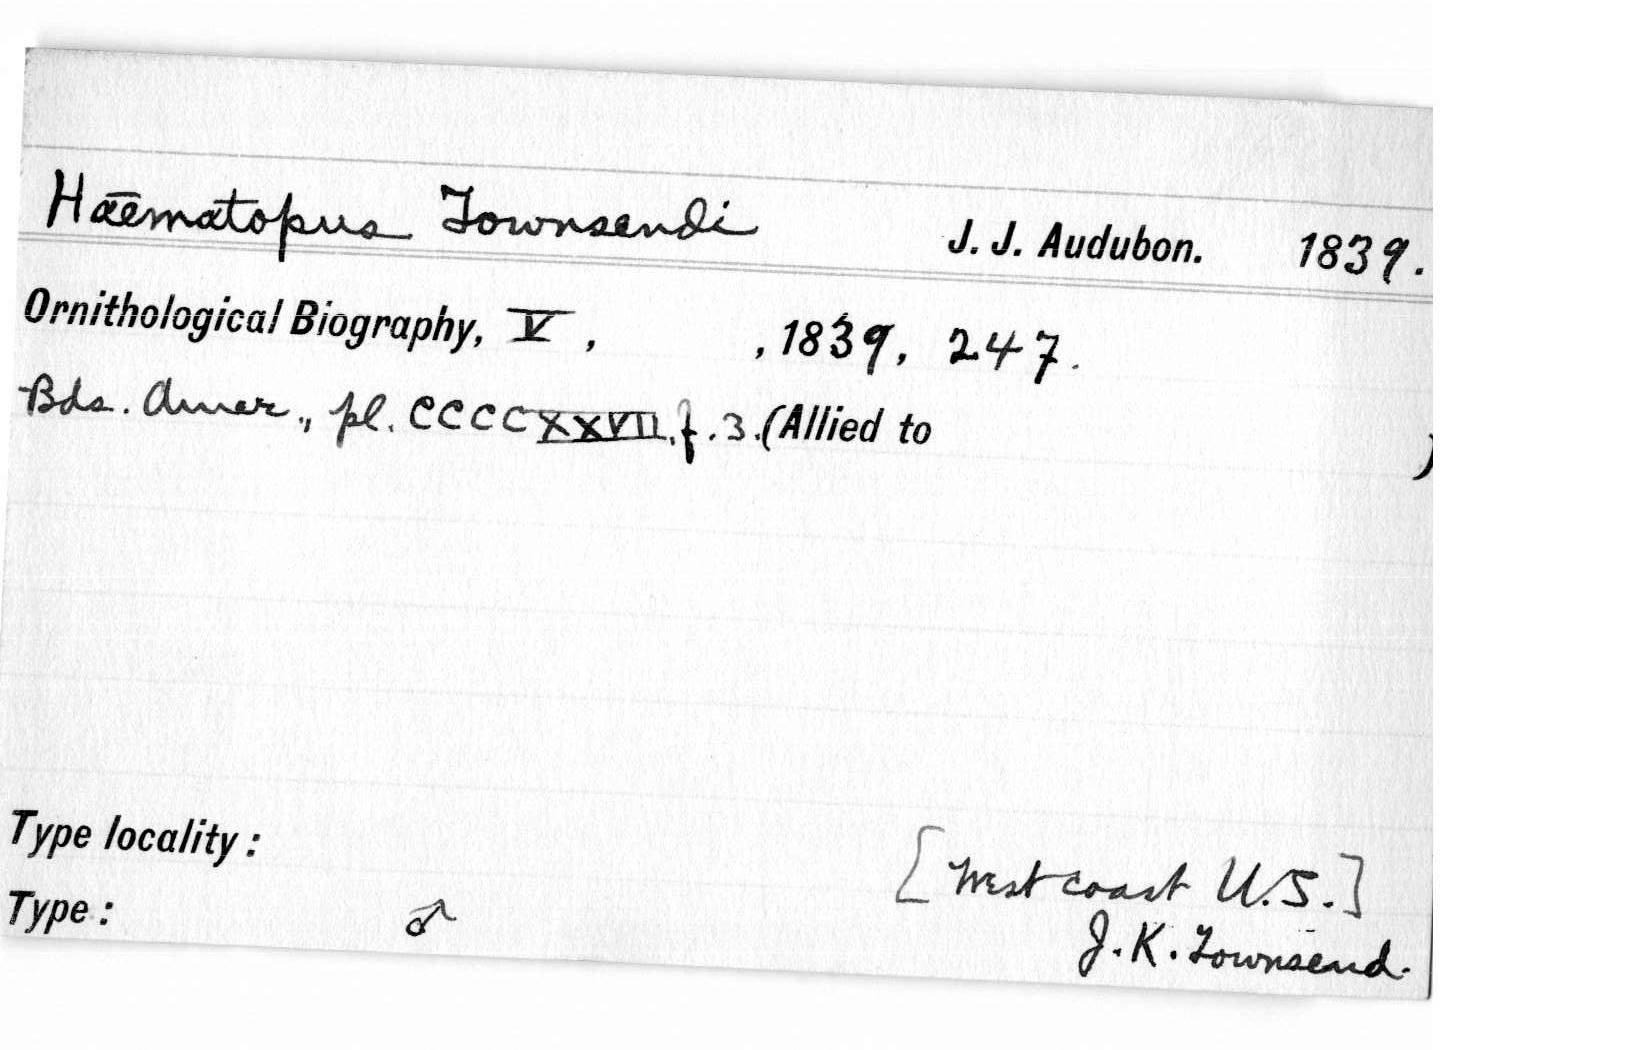 Haematopus Townsendi J. J. Audubon. 1839.
Ornithological Biography, V, , 1839, 247.
Bds. Amer., pl. CCCCXXVII, f. 3. (Allied to )
Type locality: [West coast U.S.]
Type: ♂ J. K. Townsend.